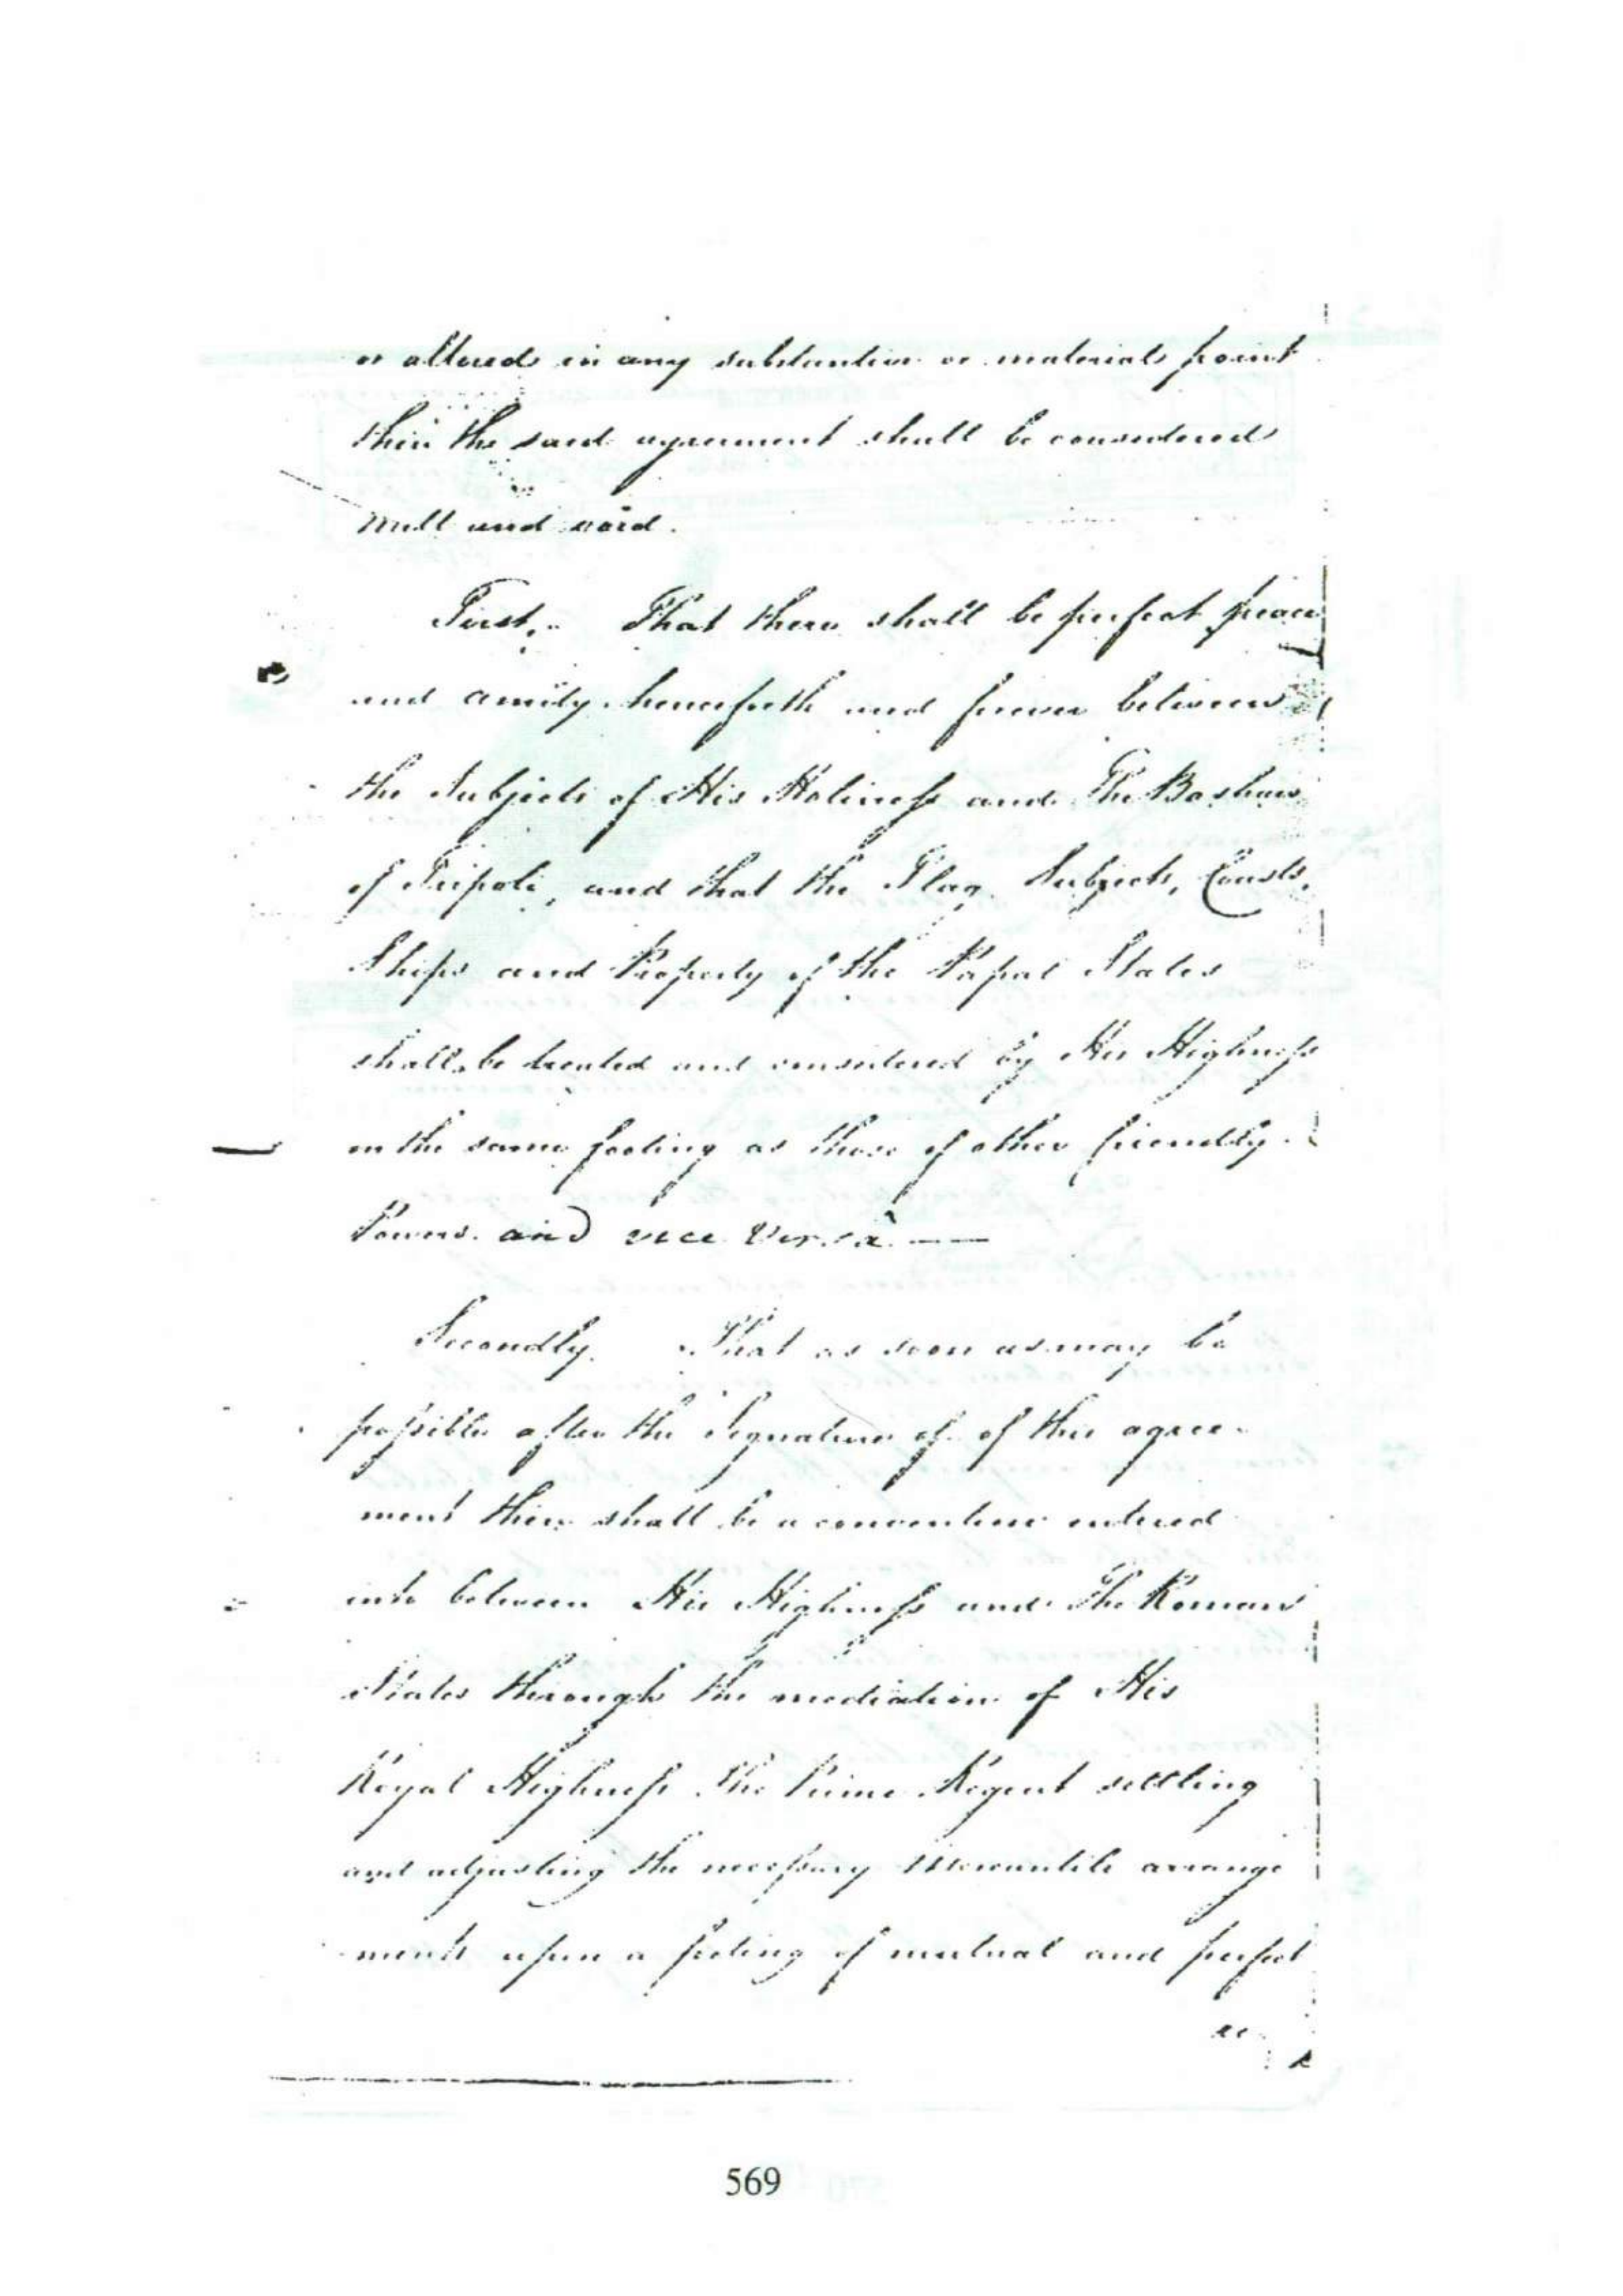 or altered in any substantive or material point
then the said agreement shall be considered
null and void.
First,. That there shall be perfect peace
and amity henceforth and forever between
the Subjects of His Holiness and The Bashaw
of Tripoli, and that the Flag, Subjects, Coasts,
Ships and Property of the Papal States
shall be treated and considered by His Highness
on the same footing as those of other friendly
Powers. and vice versà. —
Secondly. That as soon as may be
possible after the Signature of of this agree-
ment there shall be a convention entered
into between His Highness and The Roman
States through the mediation of His
Royal Highness The Prince Regent settling
and adjusting the necessary Mercantile arrange
ments upon a footing of mutual and perfect
569